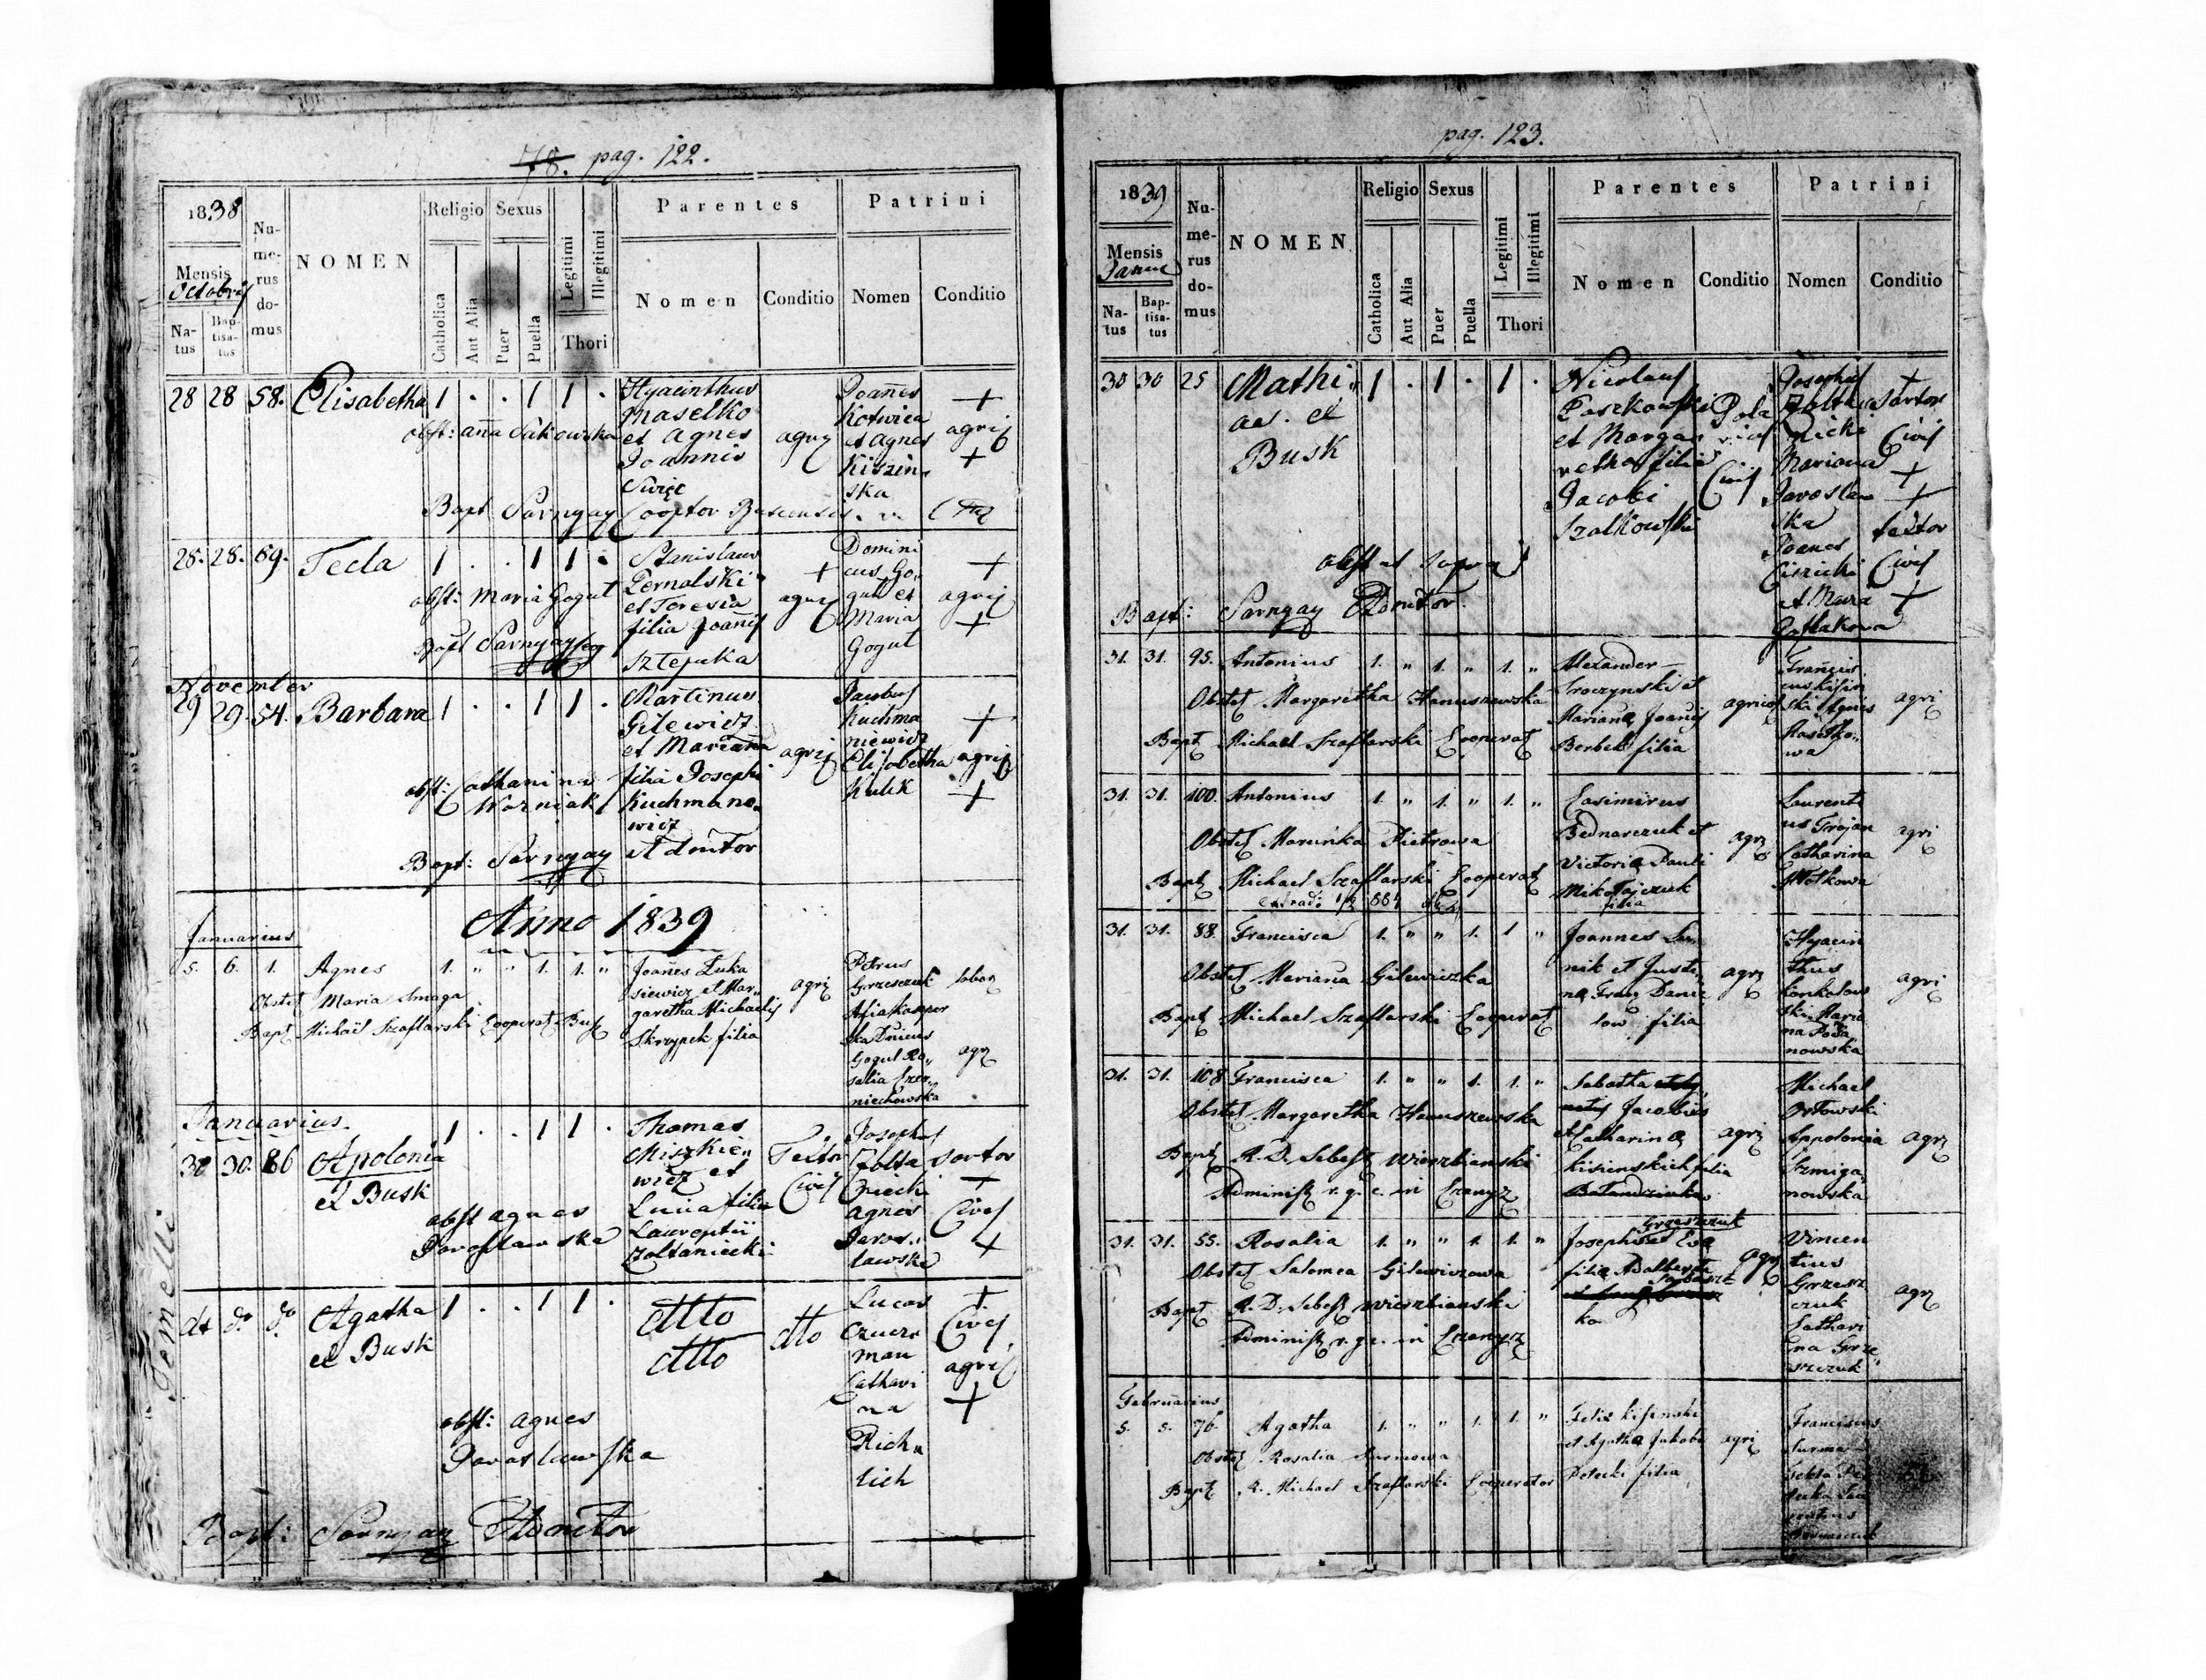 78. pag. 122.
1838
Mensis
Octobris
Natus
Baptisatus
Numerus domus
NOMEN
Religio
Catholica
Aut Alia
Sexus
Puer
Puella
Legitimi
Illegitimi
Thori
Parentes
Nomen
Conditio
Patrini
Nomen
Conditio
28 28 58. Elisabetha 1 . . 1 1 .
Hyacinthus
Maselko
et Agnes
Joannis
Swięc
agrij
Joañes
Kotwica
et Agnes
Kiszin
ska
+
agrij
+
obst: aña Sakowska
Bapt Sarngay Cooptor Buscensis
28. 28. 69. Tecla 1 . . 1 1 .
Stanislaus
Pernalski
et Teresia
filia Joañis
Sztejuka
+
agrij
Domini
cus Go
gut et
Maria
Gogut
+
agrij
+
obst: Maria Gogut
Bapt Sarngay
November
29 29. 54. Barbara 1 . . 1 1 .
Martinus
Gilewicz
et Mariaña
filia Josephi
Kuchmano
wicz
agrij
Jacobus
Kuchma
niewicz
Elisabetha
Kulik
+
agrij
+
obst: Catharina
Wozniak
Bapt: Sarngay Admtor
Anno 1839
Januarius
5. 6. 1. Agnes 1. " " 1. 1. "
Joañes Luka
siewicz et Mar
garetha Michaelis
Skrzypek filia
agri
Petrus
Grzeszczuk
Kasper
ska
Gogul Ro
salia Czer
niechowska
agri
Obstet Maria Smaga
Bapt Michaël Szaflarski Cooperat Busc
Januarius.
30 30. 86 Apolonia
et Busk
1 . . 1 1 .
Thomas
Miszkie
wicz et
Lucia filia
Laurentii
Zoltaniecki
Textor
Civis
Joseph
Zolta
niecki
agnes
Jaros
lawska
Sartor
+
Cives
+
obst agnes
Jaroslawska
dt do do Agatha
et Busk
1 . . 1 1 .
dtto
dtto
dtto
Lucas
Czucz
man
Cathari
na
Rich
lich
+
Cives
agris
+
obst: agnes
Jaroslawska
Bapt: Sarngay Admtor
Gemelli
pag. 123.
1839
Mensis
Janu
Natus
Baptisatus
Numerus domus
NOMEN
Religio
Catholica
Aut Alia
Sexus
Puer
Puella
Legitimi
Illegitimi
Thori
Parentes
Nomen
Conditio
Patrini
Nomen
Conditio
30 30 25 Mathi
as. et
Busk
1 . 1 . 1 .
Nicolaus
Paszkowski
et Marga
retha filia
Jacobi
Szalkowski
Civis
Josephus
Zolta
nicki
Mariana
Jaroslaw
ska
Joanes
Ciszicki
et Maria
+
Sartor
Civis
+
+
textor
Civis
+
obst ut supra
Bapt: Sarngay Admtor.
31. 31. 95. Antonius 1. " 1. " 1. "
Alexander
Sroczynski et
Mariana Joañis
Berbek filia
agricol
Francis
cus Kisin
ski Agnes
Maselko
wa
agri
Obstet Margaretha Hanuszewska
Bapt Michael Szaflarski Cooperat
31. 31. 100. Antonius 1. " 1. " 1. "
Casimirus
Bednarczuk et
Victoria Pauli
Mikołajczuk
filia
agri
Laurenti
us Trojan
Catharina
Wołkowa
agri
Obstet Marinka Pietrowa
Bapt Michael Szaflarski Cooperat
31. 31. 88. Francisca 1. " " 1. 1 "
Joannes
nik et Justi
na Fran Dani
low filia
agri
Hyacin
thus
Konkolow
ski Maria
na
nowska
agri
Obstet Mariana Gilewiczka
Bapt Michael Szaflarski Cooperat
31. 31. 108 Francisca 1. " " 1. 1. "
Sabatha
Jacobus
et Catharina
Kisienskich filia
agri
Michael
Orłowski
Appolonia
Szmiga
nowska
agri
Obstet Margaretha Hanuszewska
Bapt R. D. Sebast Wierzbianski
Administ r. g. c. in Czanyz
31. 31. 55. Rosalia 1. " " 1. 1. "
Grzeszczuk
Josephus et Eva
filia Adalberta
ka
agri
Vincen
tius
Grzesz
czuk
Cathari
na Grze
szczuk
agri
Obstet Salomea Gilewiczowa
Bapt R. D. Sebast Wierzbianski
Administ r. g. c. in Czanyz
Februarius
5. 5. 76. Agatha 1. " " 1. 1. "
Felix Kisinski
et Agatha Jakobi
Potocki filia
agri
Franciscus
Surma
Tekla
Obstet Rosalia Surmowa
Bapt R. Michael Szaflarski Cooperator